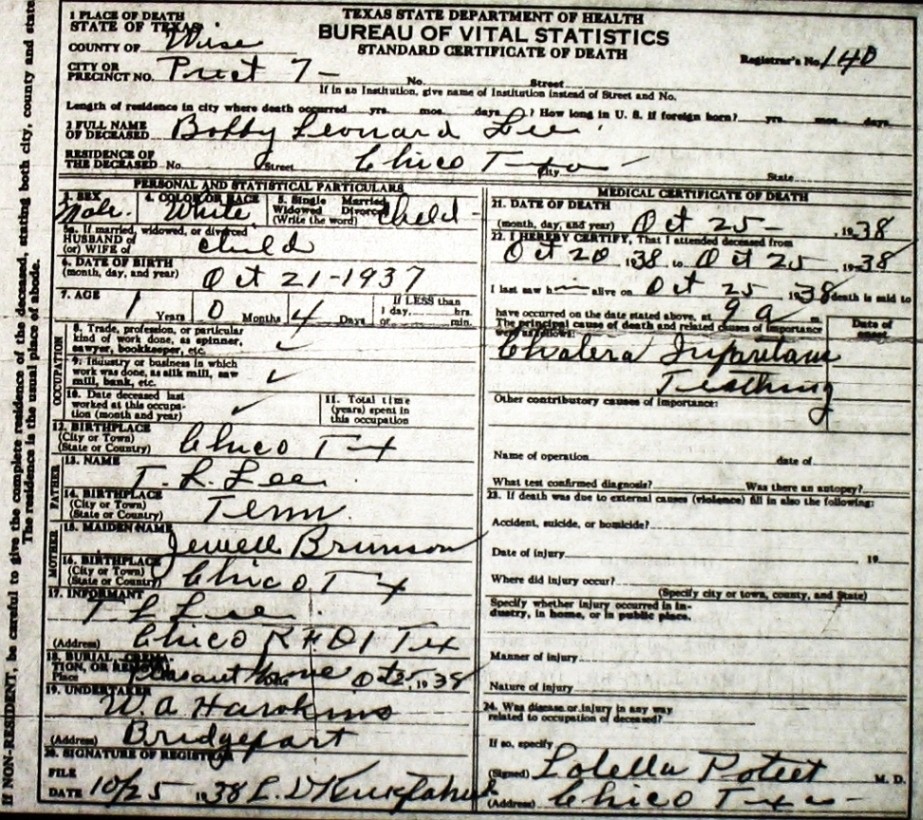 TEXAS STATE DEPARTMENT OF HEALTH
BUREAU OF VITAL STATISTICS
STANDARD CERTIFICATE OF DEATH
1 PLACE OF DEATH
STATE OF TEXAS
COUNTY OF Wise
Registrar's No. 140
CITY OR
PRECINCT NO. Prect 7 - No. Street
If in an Institution, give name of Institution instead of Street and No.
Length of residence in city where death occurred yrs. mos. days. ? How long in U. S. if foreign born? yrs. mos. days.
2 FULL NAME
OF DECEASED Bobby Leonard Lee
RESIDENCE OF
THE DECEASED No. Street Chico Texas City State
PERSONAL AND STATISTICAL PARTICULARS
3. SEX Male 4. COLOR OR RACE White 5. Single Married Widowed Divorced (Write the word) Child
5a. If married, widowed, or divorced
HUSBAND of
(or) WIFE of child
6. DATE OF BIRTH
(month, day, and year) Oct 21-1937
7. AGE 1 Years 0 Months 4 Days If LESS than 1 day, hrs. or min.
OCCUPATION
8. Trade, profession, or particular
kind of work done, as spinner,
sawyer, bookkeeper, etc. ✓
9. Industry or business in which
work was done, as silk mill, saw
mill, bank, etc. ✓
10. Date deceased last
worked at this occupa-
tion (month and year) ✓
11. Total time
(years) spent in
this occupation
12. BIRTHPLACE
(City or Town)
(State or Country) Chico Tex
FATHER
13. NAME
T. L. Lee
14. BIRTHPLACE
(City or Town)
(State or Country) Tenn.
MOTHER
15. MAIDEN NAME
Jewell Brunson
16. BIRTHPLACE
(City or Town)
(State or Country) Chico Tex
17. INFORMANT
T L Lee
(Address) Chico RFD 1 Tex
18. BURIAL, CREMA-
TION, OR REMOVAL
Place Pleasant Grove Oct 25, 1938
19. UNDERTAKER
W. A. Hawkins
(Address) Bridgeport
20. SIGNATURE OF REGISTRAR
FILE
DATE 10/25 1938 L. D.
MEDICAL CERTIFICATE OF DEATH
21. DATE OF DEATH
(month, day, and year) Oct 25 - , 1938
22. I HEREBY CERTIFY, That I attended deceased from
Oct 20 1938 to Oct 25 , 1938
I last saw h alive on Oct 25 1938 death is said to
have occurred on the date stated above, at 9 a m.
The principal cause of death and related causes of importance
were as follows:
Date of
onset
Cholera Infantum
Teething
Other contributory causes of importance:
Name of operation date of
What test confirmed diagnosis? Was there an autopsy?
23. If death was due to external causes (violence) fill in also the following:
Accident, suicide, or homicide?
Date of injury 19
Where did injury occur?
(Specify city or town, county, and State)
Specify whether injury occurred in in-
dustry, in home, or in public place.
Manner of injury
Nature of injury
24. Was disease or injury in any way
related to occupation of deceased?
If so, specify
(Signed) Lolella Poteet M. D.
(Address) Chico Texas
If NON-RESIDENT, be careful to give the complete residence of the deceased, stating both city, county and state
The residence is the usual place of abode.